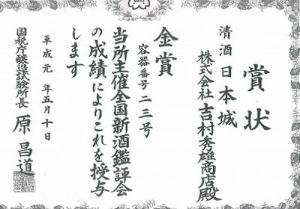 賞状
清酒 日本城
株式会社 吉村秀雄商店殿
金賞
容器番号 二三号
当所主催全国新酒鑑評会
の成績によりこれを授与
します
平成元年五月十日
国税庁醸造試験所長 原昌道